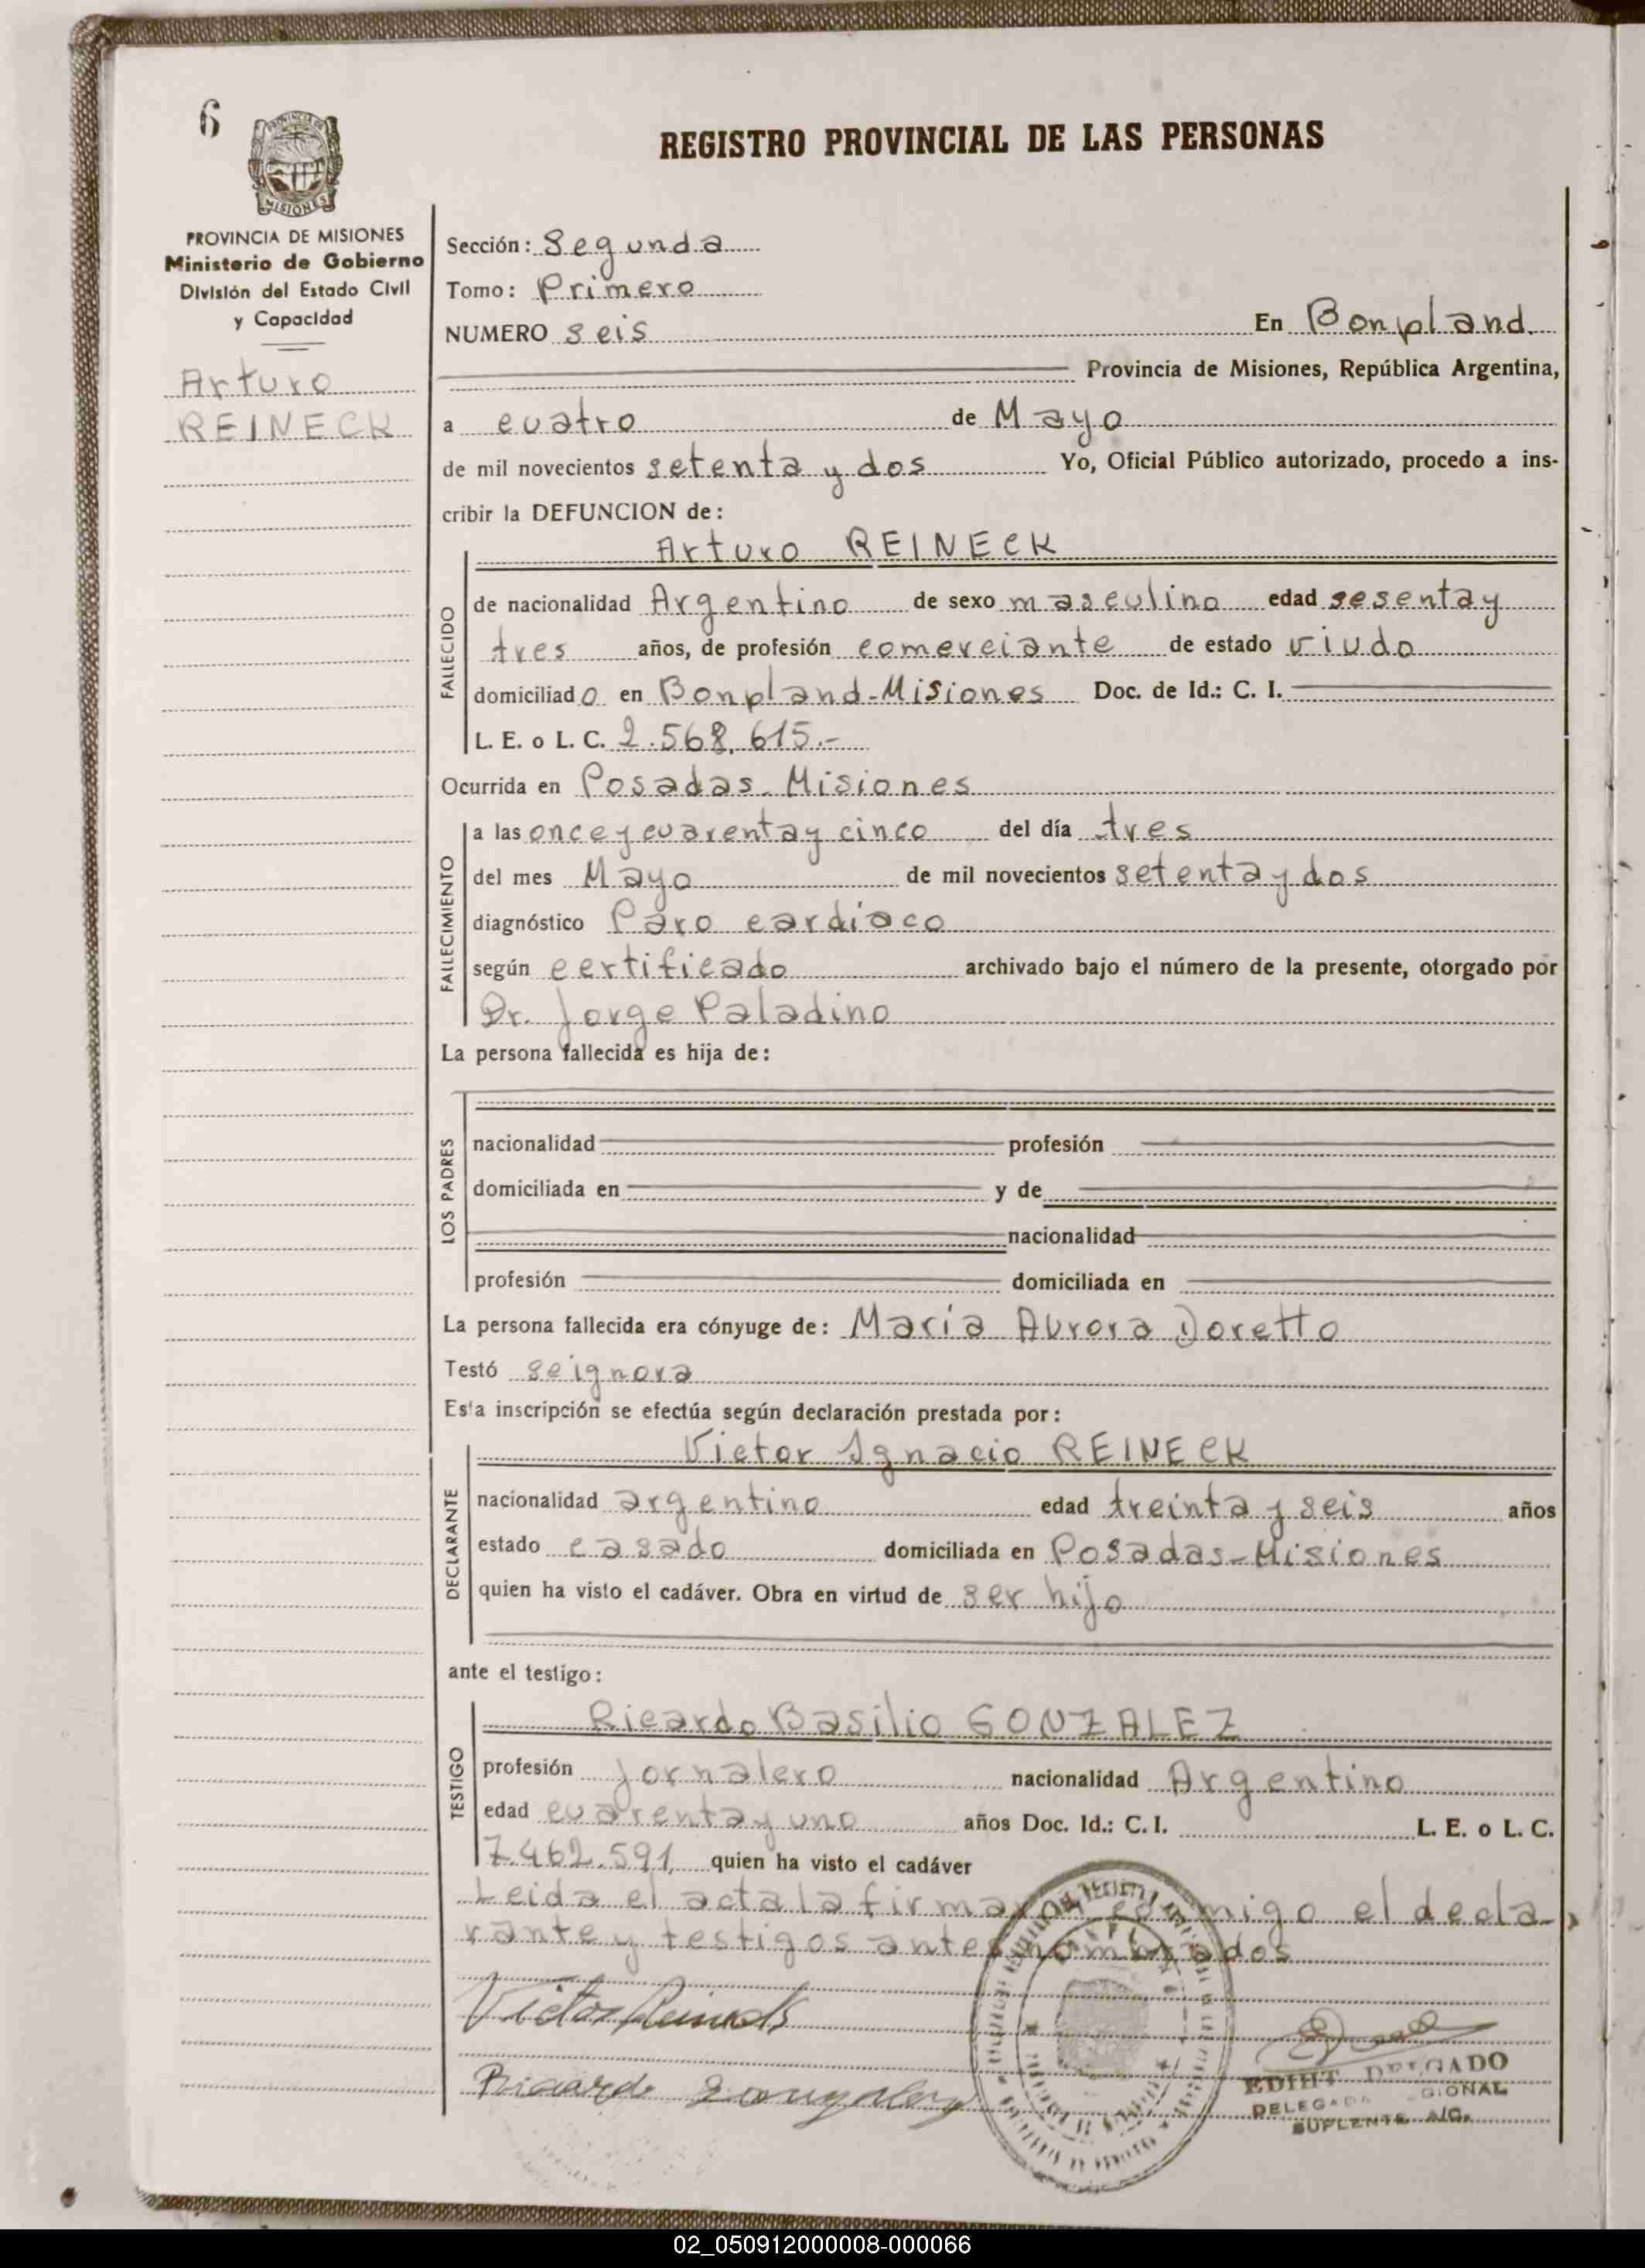 6
PROVINCIA DE
MISIONES
REGISTRO PROVINCIAL DE LAS PERSONAS
PROVINCIA DE MISIONES
Ministerio de Gobierno
División del Estado Civil
y Capacidad
Arturo
REINECK
Sección: Segunda
Tomo: Primero
NUMERO seis En Bonpland
Provincia de Misiones, República Argentina,
a cuatro de Mayo
de mil novecientos setenta y dos Yo, Oficial Público autorizado, procedo a ins-
cribir la DEFUNCION de:
Arturo REINECK
FALLECIDO
de nacionalidad Argentino de sexo masculino edad sesenta y
tres años, de profesión comerciante de estado viudo
domiciliado en Bonpland-Misiones Doc. de Id.: C. I.
L. E. o L. C. 2.568.615.-
Ocurrida en Posadas-Misiones
FAILECIMIENTO
a las once y cuarenta y cinco del día tres
del mes Mayo de mil novecientos setenta y dos
diagnóstico Paro cardiaco
según certificado archivado bajo el número de la presente, otorgado por
Dr. Jorge Paladino
La persona fallecida es hija de:
LOS PADRES
nacionalidad profesión
domiciliada en y de
nacionalidad
profesión domiciliada en
La persona fallecida era cónyuge de: María Aurora Doretto
Testó se ignora
Esta inscripción se efectúa según declaración prestada por:
Victor Ignacio REINECK
DECLARANTE
nacionalidad argentino edad treinta y seis años
estado casado domiciliada en Posadas-Misiones
quien ha visto el cadáver. Obra en virtud de ser hijo
ante el testigo:
Ricardo Basilio GONZALEZ
TESTIGO
profesión Jornalero nacionalidad Argentino
edad cuarenta y uno años Doc. Id.: C. I. L. E. o L. C.
7.462.591, quien ha visto el cadáver
Leida el acta la firman conmigo el decla-
rante y testigos antes nombrados
Victor Reineck
Ricardo Gonzalez
EDIHT DELGADO
SUPLENTE A/C.
02_050912000008-000066